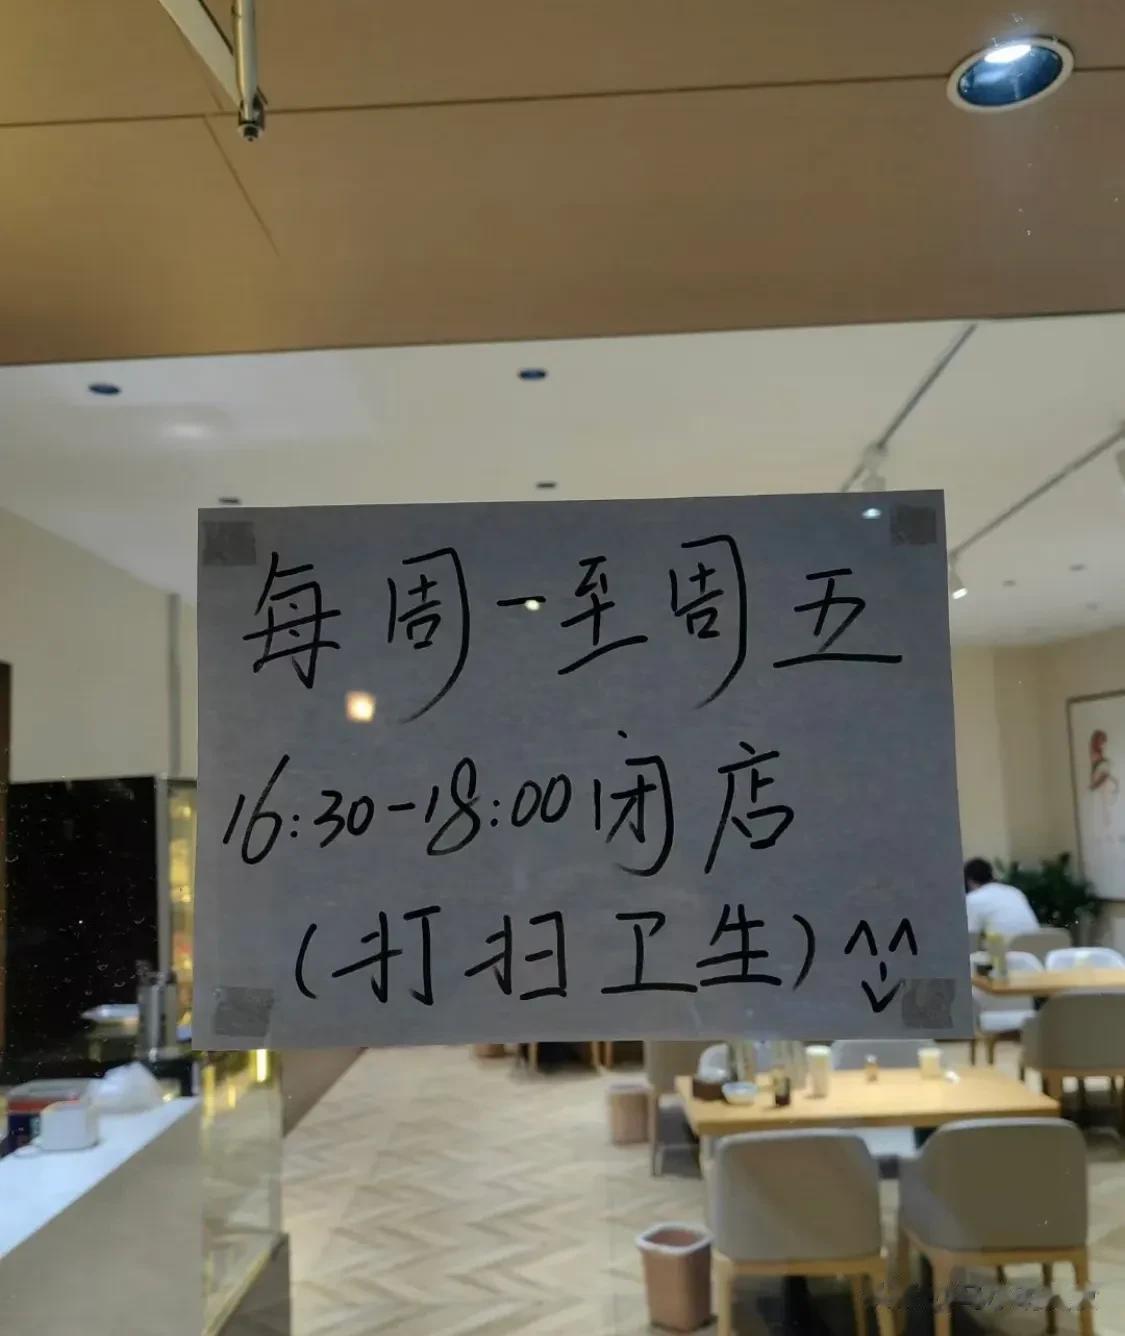 每周一至周五
16:30-18:00闭店
(打扫卫生)^^